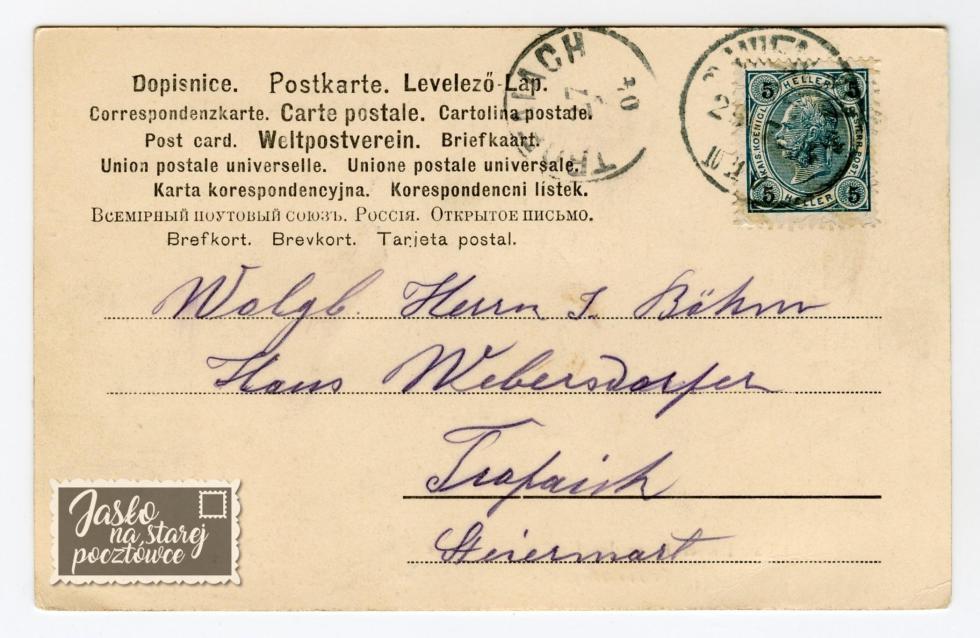 Dopisnice. Postkarte. Levelező-Lap.
Correspondenzkarte. Carte postale. Cartolina postale.
Post card. Weltpostverein. Briefkaart.
Union postale universelle. Unione postale universale.
Karta korespondencyjna. Korespondencni lístek.
Всемірный поутовый союзъ. Россія. Открытое письмо.
Brefkort. Brevkort. Tarjeta postal.
WIEN
5 HELLER 5
KAIS. KOENIGL.
5 HELLER 5
Wolgb. Herrn J. Böhm
Haus Webersdorfer
Trofaiach
Steiermark
Jaśko
na starej
pocztówce